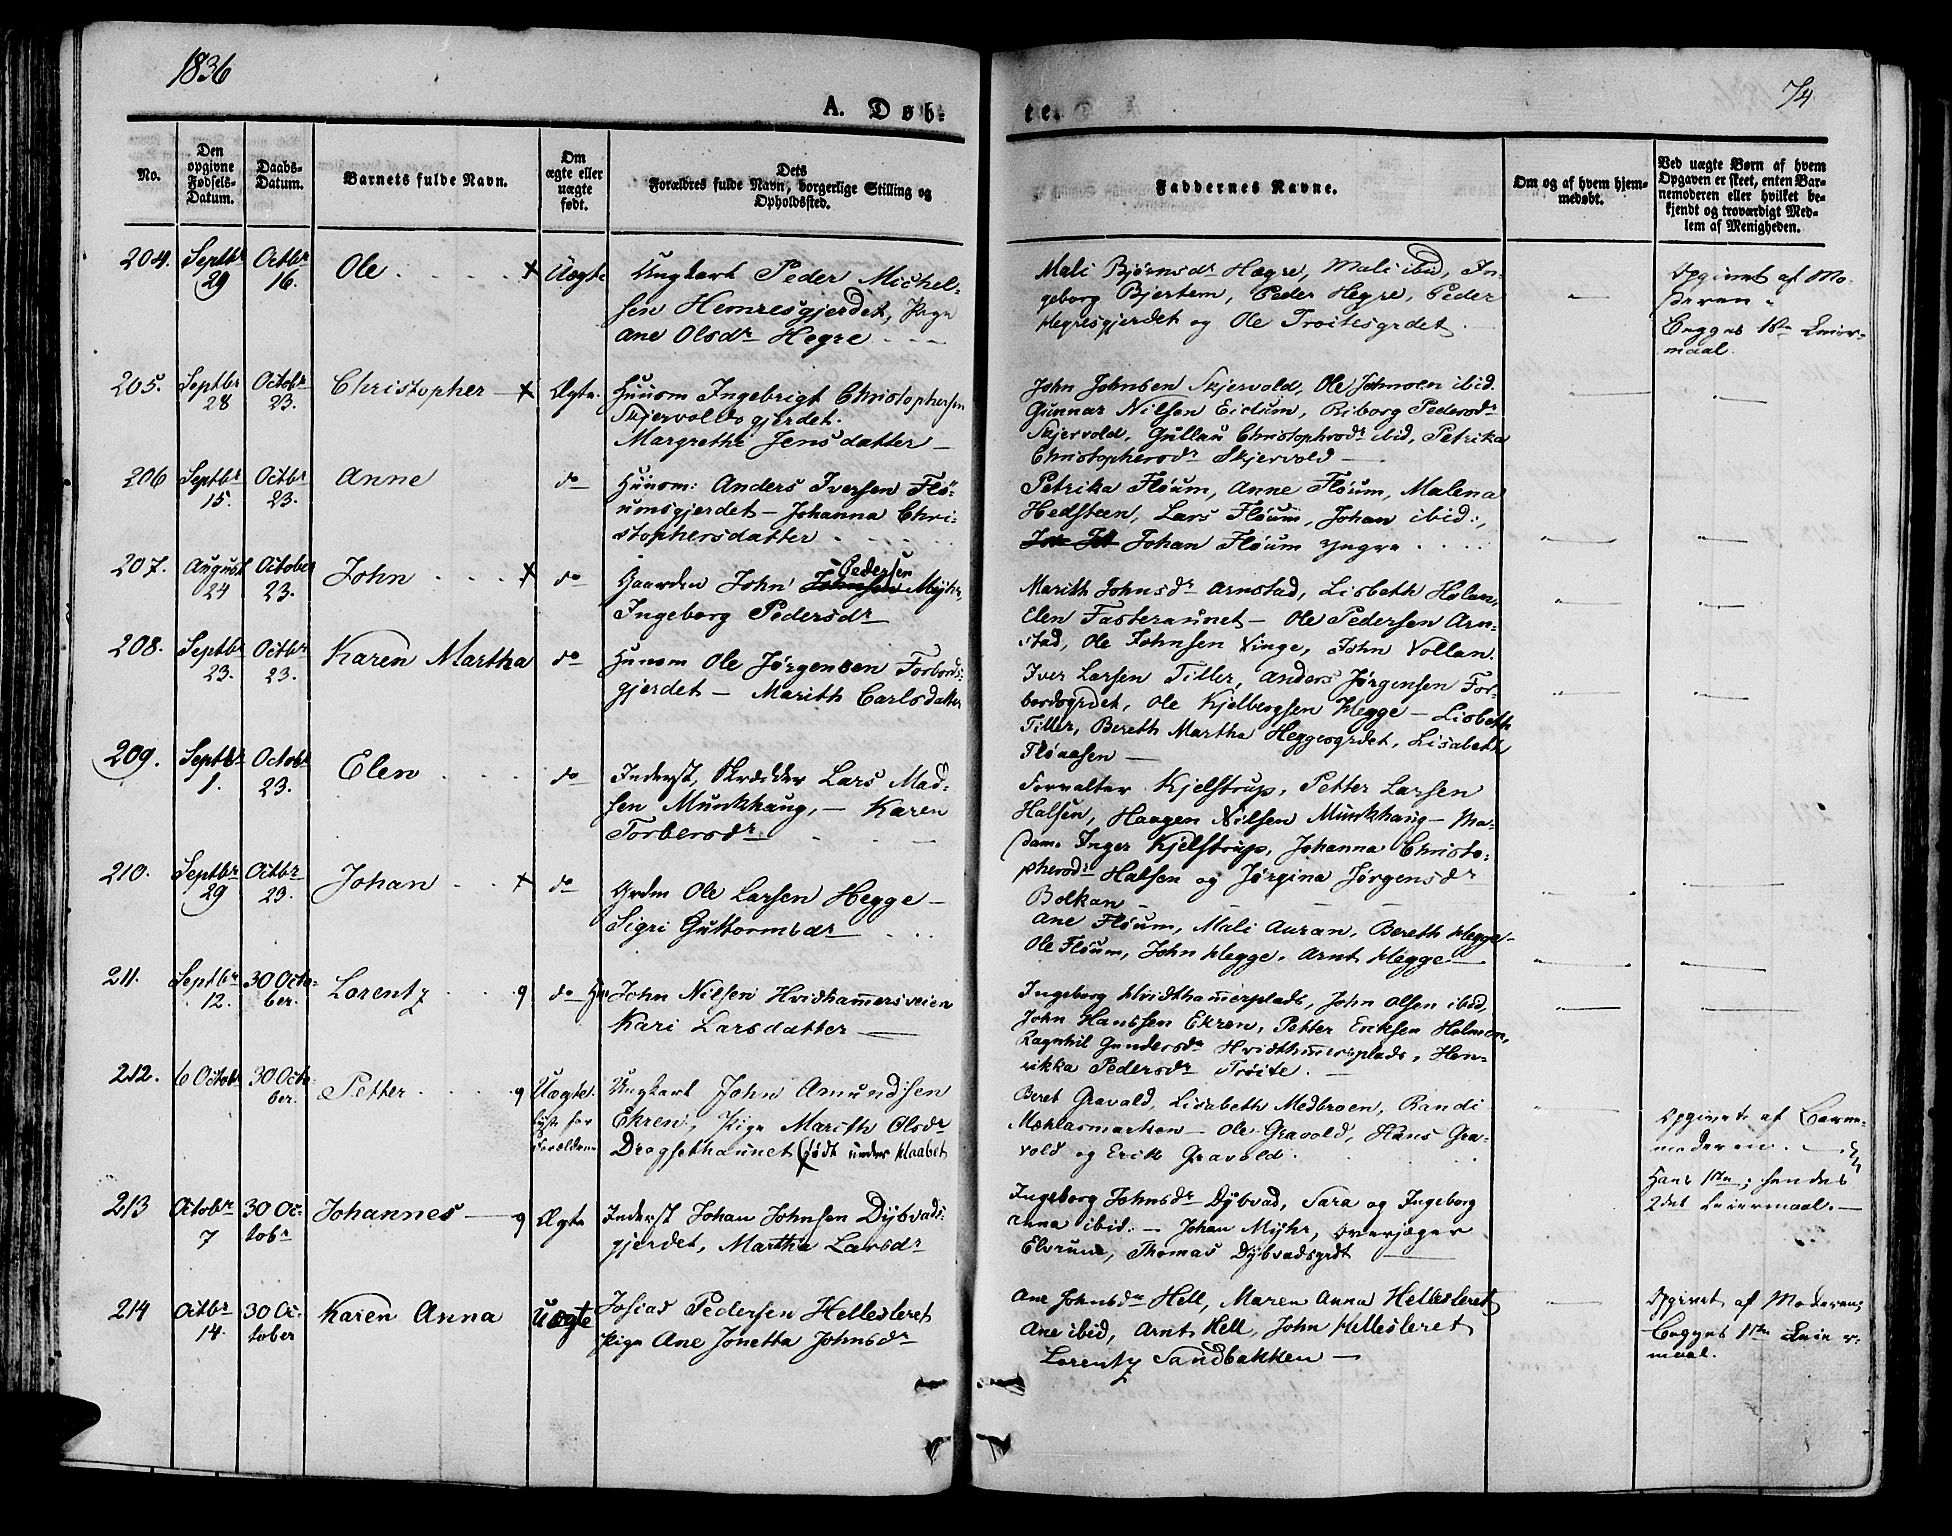 1836
74
A. Døb-
te.
No.
Den opgivne Fødsels-Datum.
Daabs-Datum.
Barnets fulde Navn.
Om ægte eller uægte født.
Dets Forældres fulde Navn, borgerlige Stilling og Opholdssted.
Faddernes Navne.
Om og af hvem hjem-medøbt.
Ved uægte Børn af hvem Opgaven er skeet, enten Bar-nemoderen eller hvilket be-kjendt og troværdigt Med-lem af Menigheden.
204. Septbr 29 Octbr 16. Ole Uægte
Ungkarl Peder Michel-
sen Hemresgjerdet, Pige
Ane Olsdr Hegre
Mali Bjørnsdr Hægre, Mali ibid, In-
geborg Bjertem, Peder Hegre, Peder
Hegresgjerdet og Ole Troitesgrdet.
Opgivet af Mo-
deren.
Begges 1ste Leier-
maal.
205. Septbr 28 Octobr 23. Christopher Ægte.
Huusm Ingebrigt Christophersen
Skjervoldsgjerdet.
Margrethe Jensdatter
John Johnsen Skjervold, Ole Johnsen ibid.
Gunnar Nilsen Eidum, Riborg Pedersdr
Skjervold, Gullau Christophrsdr ibid, Petrika
Christophersdr Skjervold
206 Septbr 15. Octbr 23. Anne do
Huusm: Anders Iversen Flø-
umsgjerdet - Johanna Chri-
stophersdatter
Petrika Fløum, Anne Fløum, Malena
Hedstøen, Lars Fløum, Johan ibid.,
Johan Fløum yngre
207. August 24 October 23. John do
Gaardm John Johnsen Pedersen Myhr,
Ingeborg Pedersdr
Marith Johnsdr Arnstad, Lisbeth Holan,
Elen Fasteraunet - Ole Pedersen Arn-
stad, Ole Johnsen Vinge, John Vollan.
208. Septbr 23. Octbr 23. Karen Martha do
Huusm Ole Jørgensen Forbords-
gjerdet - Marith Carlsdatter
Iver Larsen Tiller, Anders Jørgensen For-
bordsgrdet, Ole Kjelbergsen Hegge - Lisbeth
Tiller, Bereth Martha Heggesgrdet, Lisabeth
Fløaasen
209. Septbr 1. Octobr 23. Elen do
Inderst, Skrædder Lars Mad-
sen Munkhaug, - Karen
Torbersdr
Forvalter Kjelstrup, Petter Larsen
Halsen, Haagen Nilsen Munkhaug - Ma-
dam Inger Kjelstrup, Johanna Christo-
phersdr Halsen og Jørgina Jørgensdr
Bolkan
210. Septbr 29 Octbr 23. Johan do
Grdm Ole Larsen Hegge
Sigri Guttormsdr
Ane Fløum, Mali Auran, Bereth Hegge
Ole Fløum, John Hegge, Arnt Hegge
211. Septbr 12. 30 Octo-
ber. Lorentz do
Hm John Nilsen Hvidhamersveien
Kari Larsdatter
Ingeborg Hvidthamerplads, John Olsen ibid,
John Hanssen Ekren, Petter Eriksen Holmen,
Ragnhil Gundersdr Hvidthmersplads, Hen-
rikka Pedersdr Trøite.
212. 6 Octobr 30 Octo-
ber. Petter Uægte.
lyst for
Forældrene
Ungkarl John Amundsen
Ekren, Pige Marith Olsdr
Dragsethaunet (født under Haabet
Beret Gravald, Lisabeth Medbroen, Randi
Mæhlasmarken - Ole Gravold, Hans Gra-
vold og Erik Gravold.
Opgivet af Barne-
moderen.
Hans 1ste, hendes
2det Leiermaal.
213 Octobr 7 30 Oc-
tobr Johannes Ægte
Inderst Johan Johnsen Dybvads-
gjerdet, Martha Larsdr
Ingeborg Johnsdr Dybvad, Sara og Ingeborg
Anna ibid. - Johan Myhr, Overjæger
Elvrum, Thomas Dybvadsgrdt
214 Octbr 14. 30 Oc-
tober Karen Anna Uægte
Josias Pedersen Hellesleret
Pige Ane Jonetta Johnsdr
Ane Johnsdr Hell, Maren Anna Hellesleret
Ane ibid, Arnt Hell, John Hellesleret
Lorentz Sandbakken
Opgivet af Moderen;
Begges 1ste Leier-
maal.